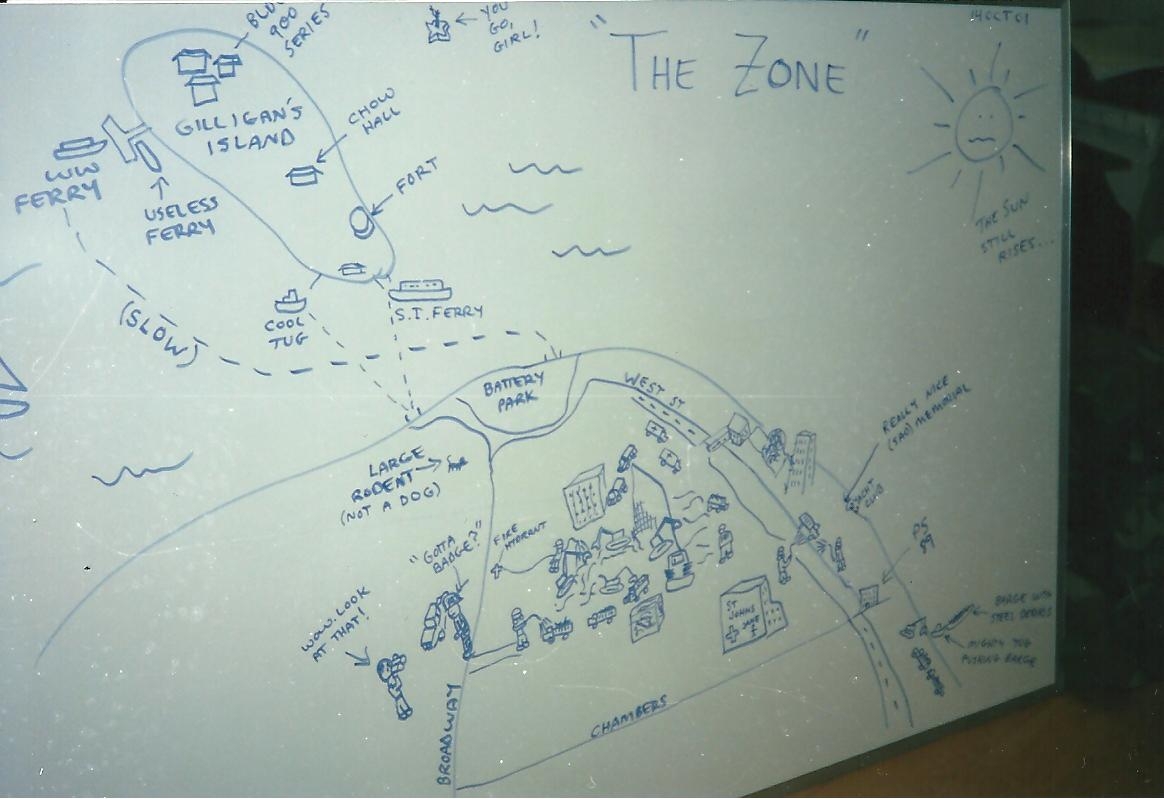 14 OCT 01
"THE ZONE"
900
SERIES
YOU
GO,
GIRL!
GILLIGAN'S
ISLAND
CHOW
HALL
WW
FERRY
USELESS
FERRY
FORT
THE SUN
STILL
RISES...
(SLOW)
COOL
TUG
S.I. FERRY
BATTERY
PARK
WEST ST
REALLY NICE
(SAD) MEMORIAL
LARGE
RODENT
(NOT A DOG)
YACHT
CLUB
"GOTTA
BADGE?"
FIRE HYDRANT
PS
89
WOW. LOOK
AT THAT!
ST
JOHNS
BARGE WITH
STEEL DEBRIS
MIGHTY TUG
PUSHING BARGE
BROADWAY
CHAMBERS